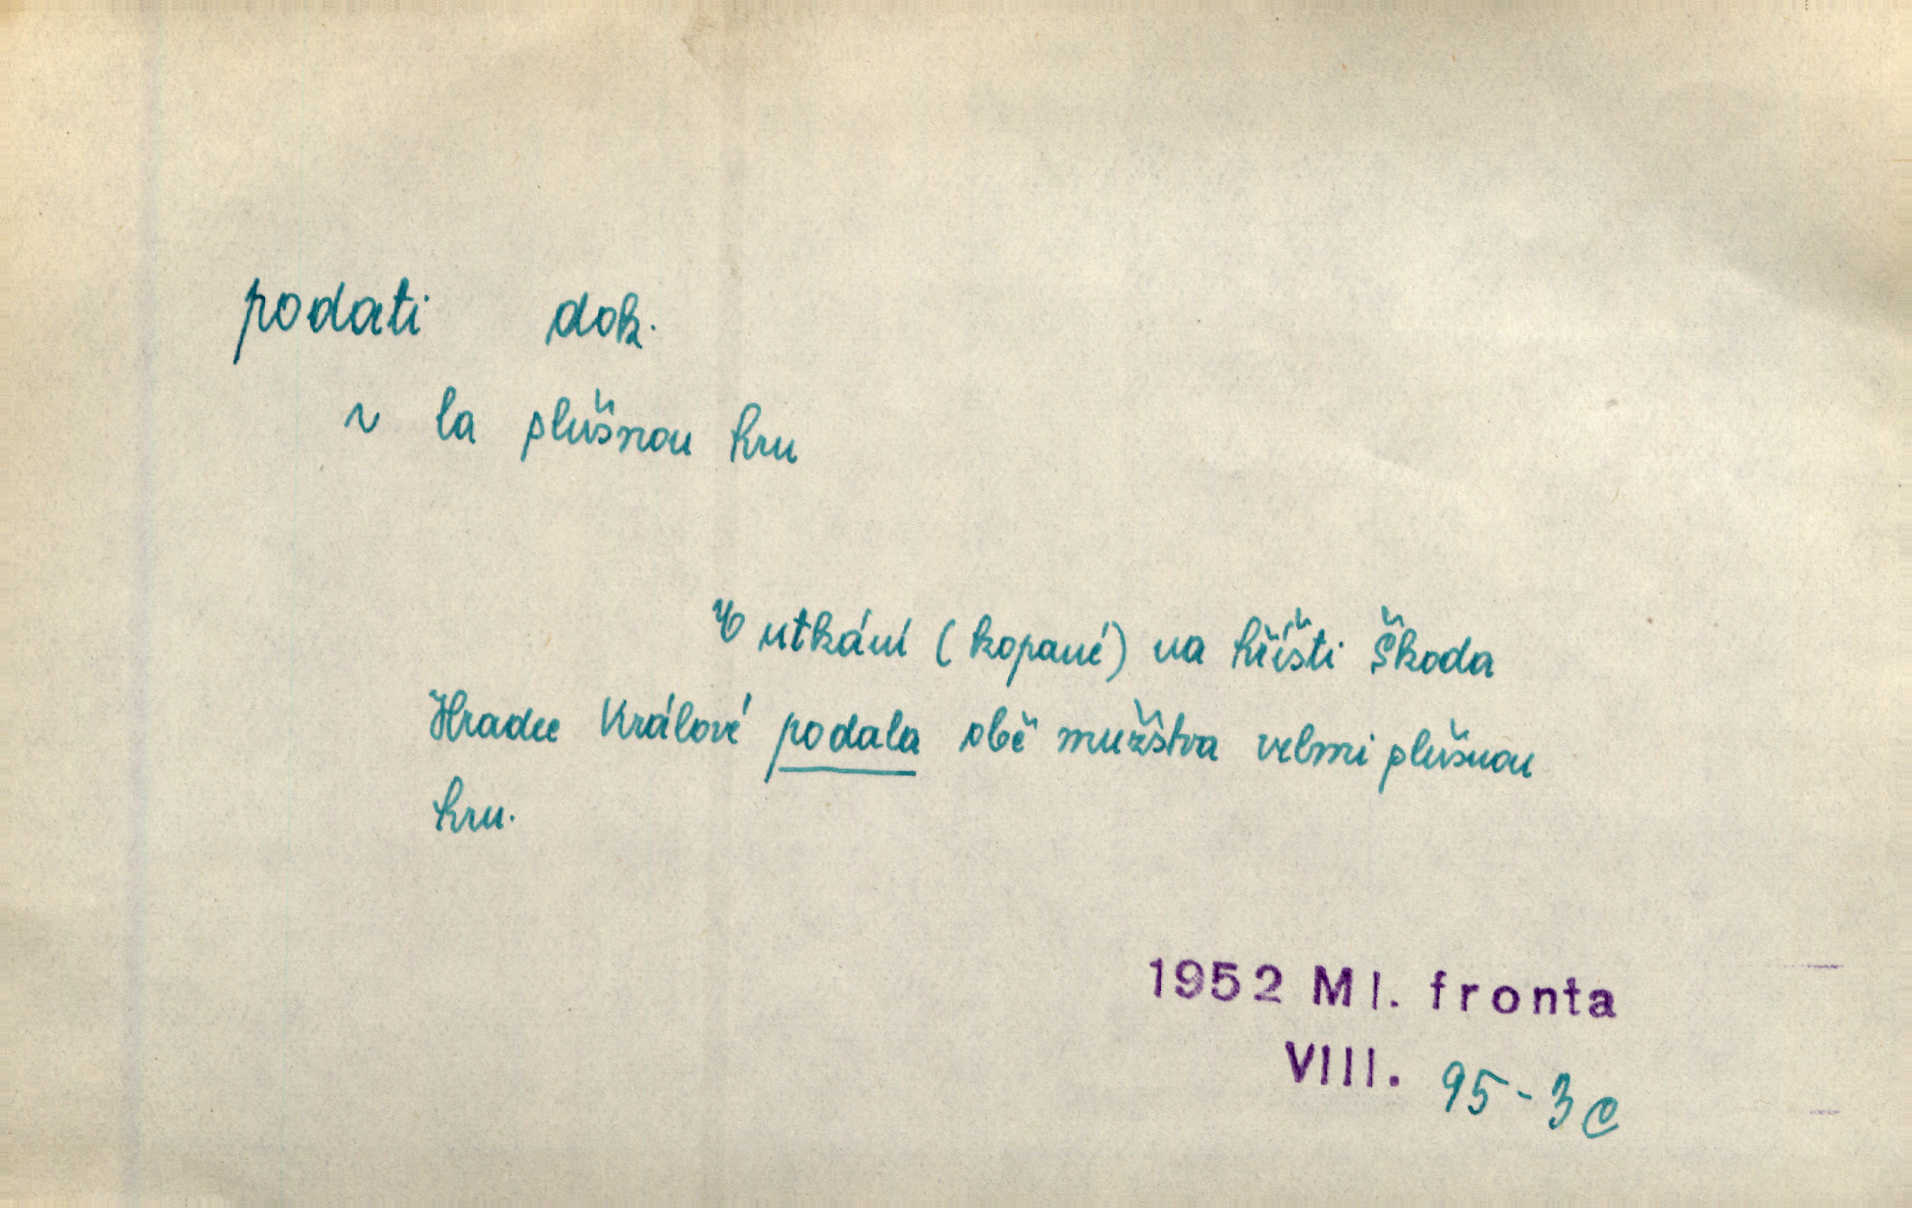 podati dok.
~ la slušnou hru
V utkání (kopané) na hřišti Škoda
Hradec Králové podala obě mužstva velmi slušnou
hru.
1952 Ml. fronta
VIII. 95-3c